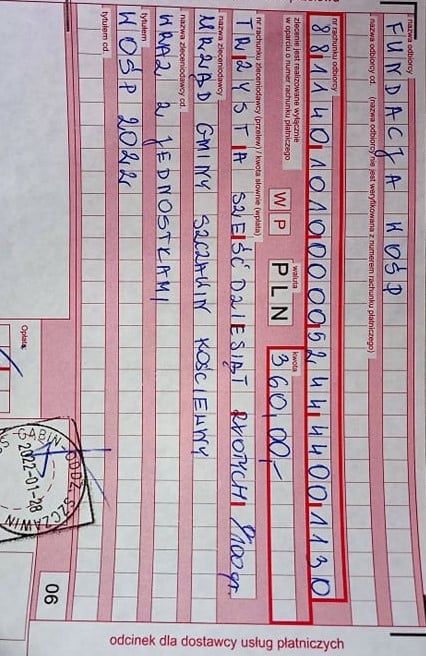 nazwa odbiorcy
FUNDACJA WOŚP
nazwa odbiorcy cd. (nazwa odbiorcy nie jest weryfikowana z numerem rachunku płatniczego)
nr rachunku odbiorcy
88114010100000524444001130
zlecenie jest realizowane wyłącznie
w oparciu o numer rachunku płatniczego
W P
waluta
PLN
kwota
360,00,-
nr rachunku zleceniodawcy (przelew) / kwota słownie (wpłata)
TRZYSTA SZEŚĆDZIESIĄT ZŁOTYCH 0/100 gr.
nazwa zleceniodawcy
URZĄD GMINY SZCZAWIN KOŚCIELNY
nazwa zleceniodawcy cd.
WRAZ Z JEDNOSTKAMI
tytułem
WOŚP 2022
tytułem cd.
Opłata:
GĄBIN ODDZ. SZCZAWIN
2022-01-28
06
odcinek dla dostawcy usług płatniczych